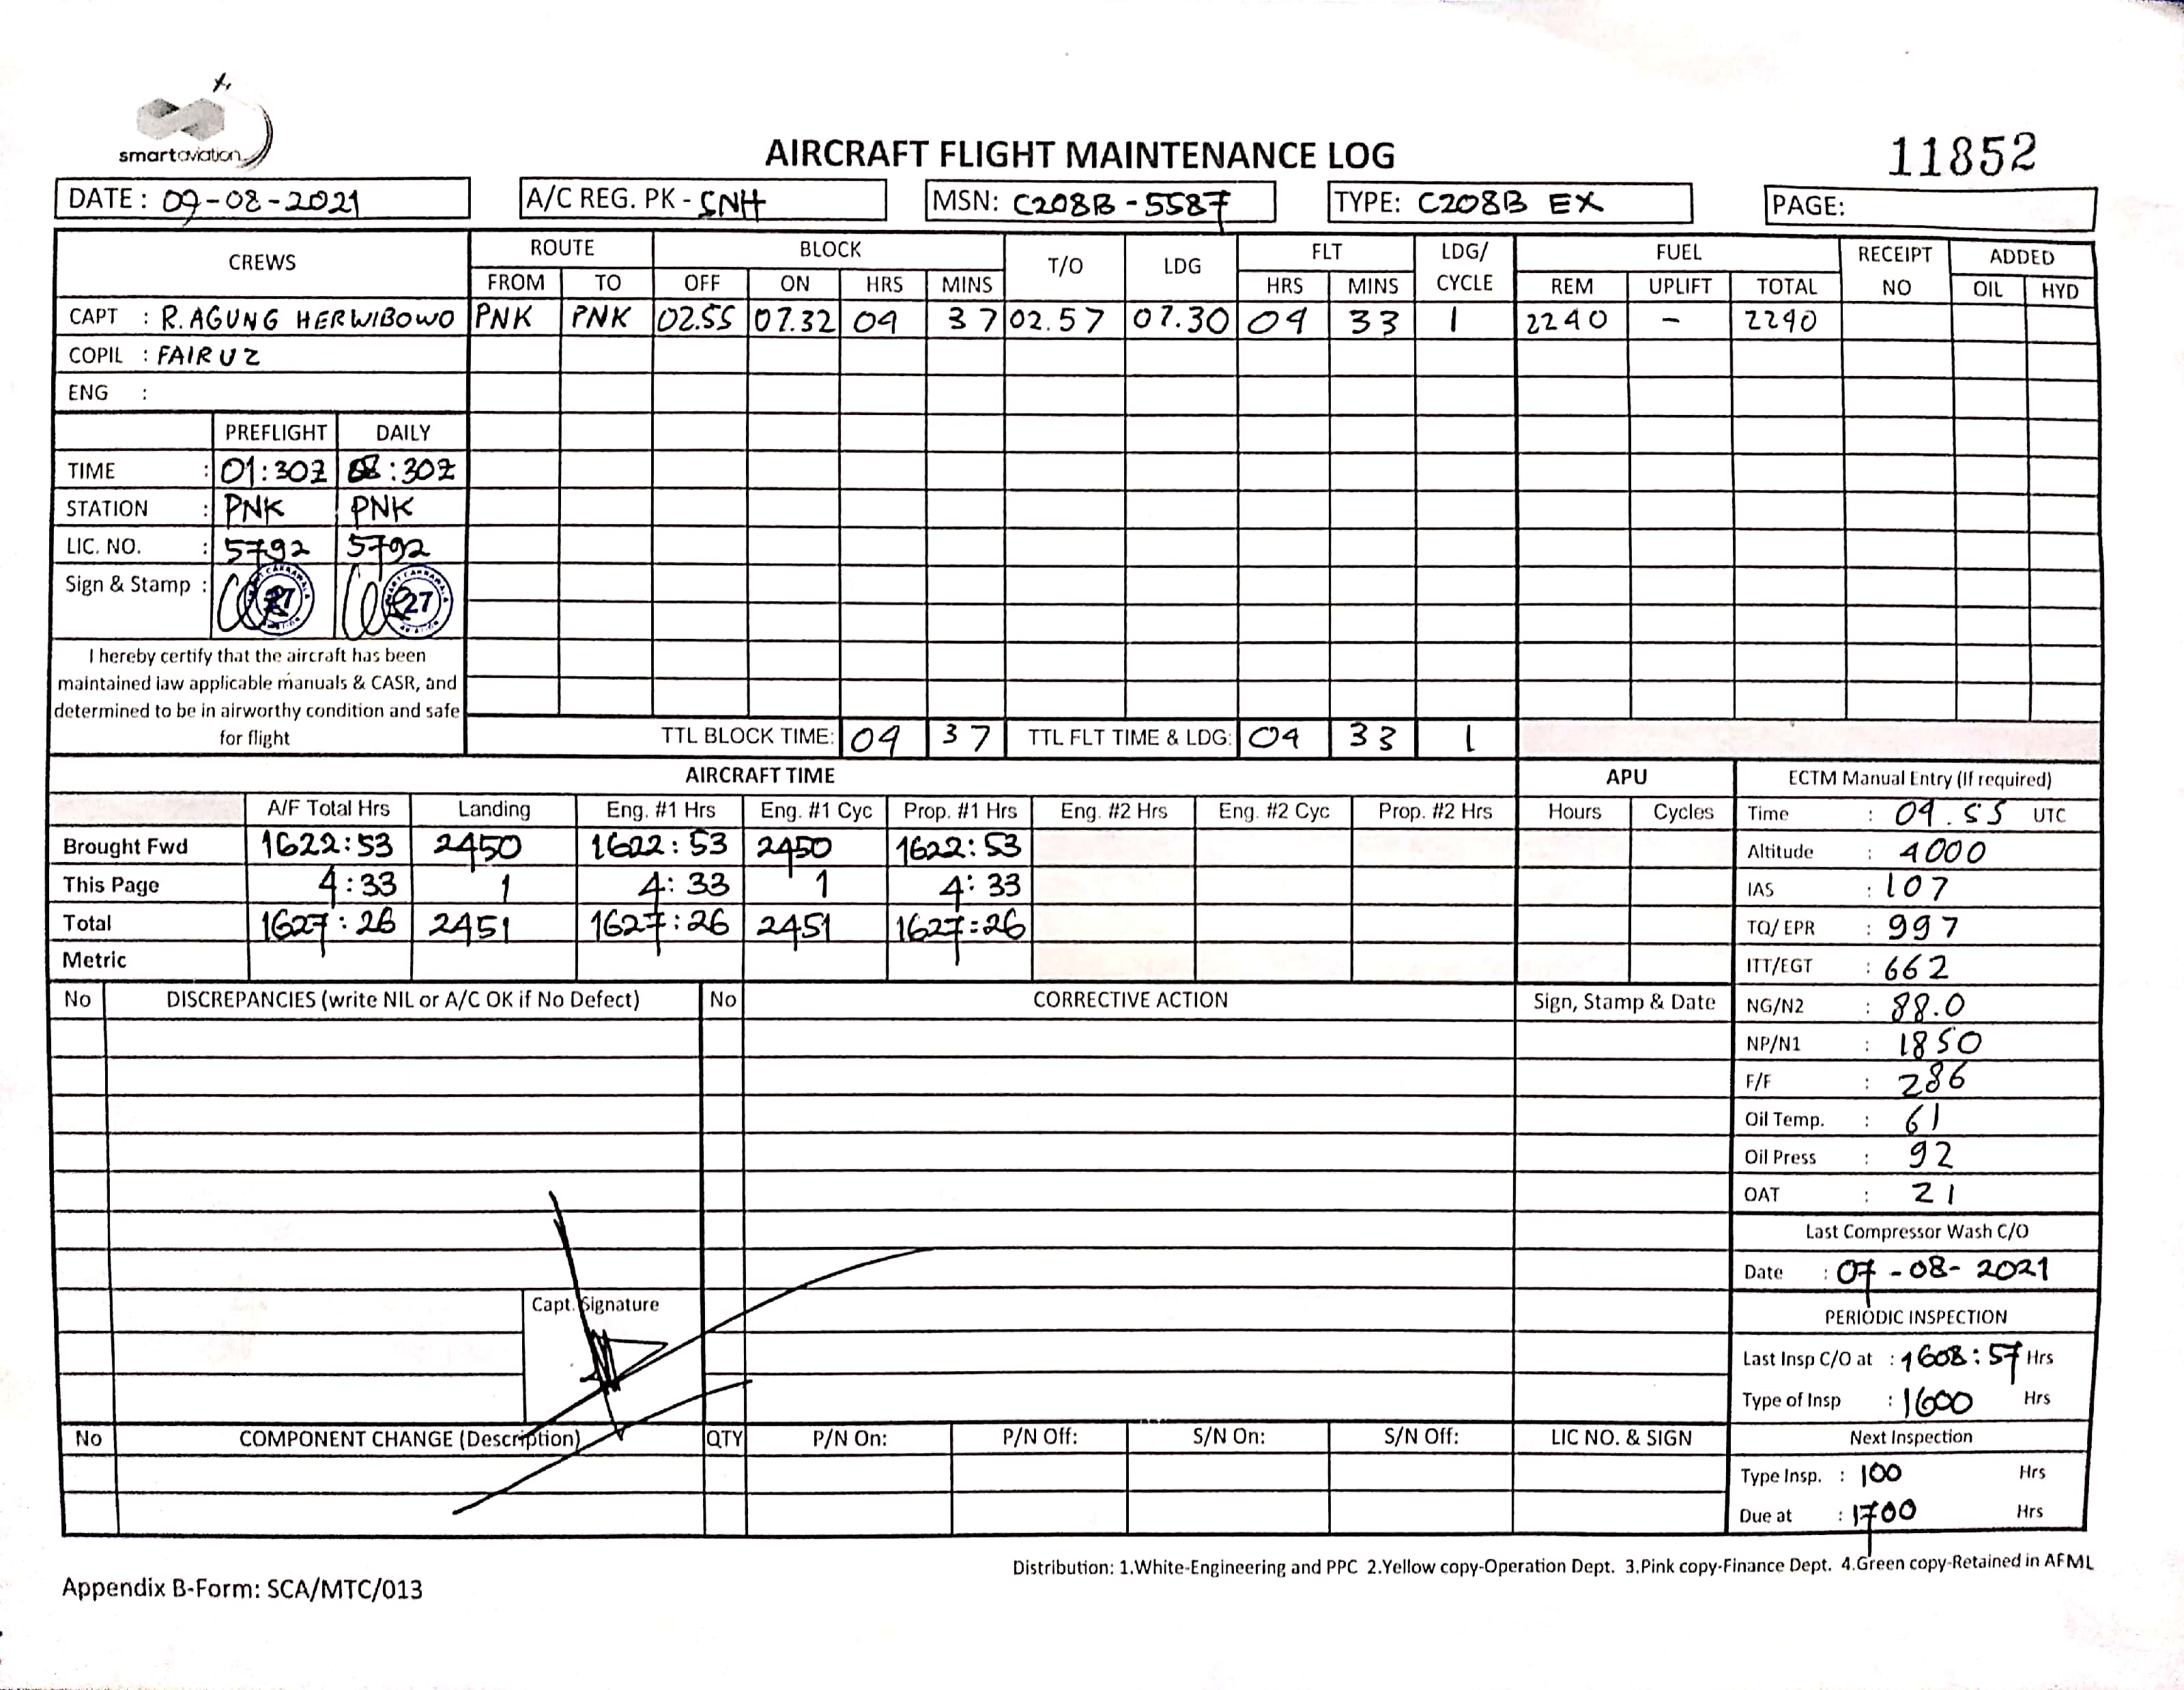 smartaviation
AIRCRAFT FLIGHT MAINTENANCE LOG
11852
DATE : 09-08-2021 A/C REG. PK - SNH MSN: C208B - 5587 TYPE: C208B EX PAGE:
CREWS ROUTE BLOCK T/O LDG FLT LDG/ CYCLE FUEL RECEIPT NO ADDED
FROM TO OFF ON HRS MINS HRS MINS REM UPLIFT TOTAL OIL HYD
CAPT : R. AGUNG HERWIBOWO PNK PNK 02.55 07.32 04 37 02.57 07.30 04 33 1 2240 - 2240
COPIL : FAIRUZ
ENG :
PREFLIGHT DAILY
TIME : 01:30Z 08:30Z
STATION : PNK PNK
LIC. NO. : 5792 5792
Sign & Stamp : 27 27
I hereby certify that the aircraft has been
maintained iaw applicable manuals & CASR, and
determined to be in airworthy condition and safe
for flight
TTL BLOCK TIME: 04 37 TTL FLT TIME & LDG: 04 33 1
AIRCRAFT TIME APU ECTM Manual Entry (If required)
A/F Total Hrs Landing Eng. #1 Hrs Eng. #1 Cyc Prop. #1 Hrs Eng. #2 Hrs Eng. #2 Cyc Prop. #2 Hrs Hours Cycles Time : 04.55 UTC
Brought Fwd 1622:53 2450 1622:53 2450 1622:53 Altitude : 4000
This Page 4:33 1 4:33 1 4:33 IAS : 107
Total 1627:26 2451 1627:26 2451 1627:26 TQ/ EPR : 997
Metric ITT/EGT : 662
No DISCREPANCIES (write NIL or A/C OK if No Defect) No CORRECTIVE ACTION Sign, Stamp & Date NG/N2 : 88.0
NP/N1 : 1850
F/F : 286
Oil Temp. : 61
Oil Press : 92
OAT : 21
Last Compressor Wash C/O
Date : 07-08-2021
Capt. Signature
PERIODIC INSPECTION
Last Insp C/O at : 1608:57 Hrs
Type of Insp : 1600 Hrs
No COMPONENT CHANGE (Description) QTY P/N On: P/N Off: S/N On: S/N Off: LIC NO. & SIGN Next Inspection
Type Insp. : 100 Hrs
Due at : 1700 Hrs
Distribution: 1.White-Engineering and PPC 2.Yellow copy-Operation Dept. 3.Pink copy-Finance Dept. 4.Green copy-Retained in AFML
Appendix B-Form: SCA/MTC/013